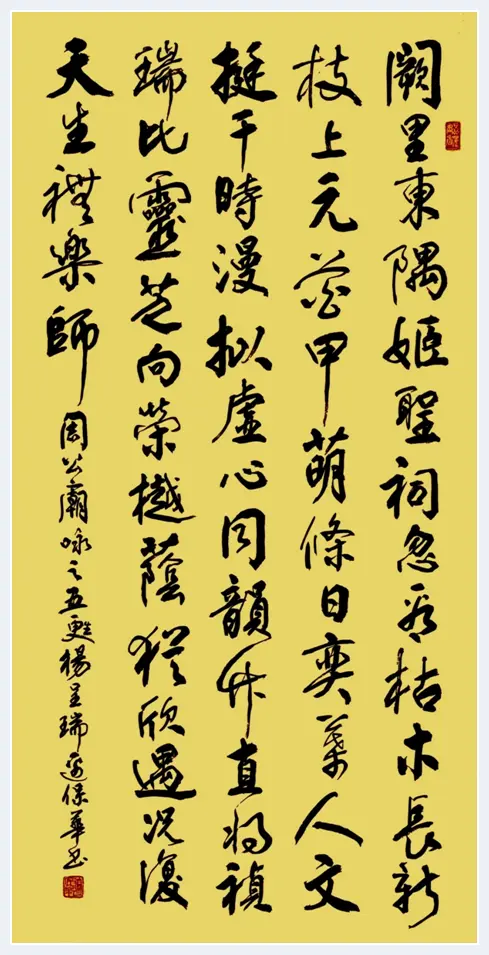 闕里東隅姬聖祠忽看枯木長新
枝上元蓂甲萌條日奕葉人文
挺干時漫拟虛心同韻竹直將禎
瑞比靈芝向榮樾蔭猶欣遇況復
天生禮樂師
周公廟咏之五甦楊呈瑞 保華书